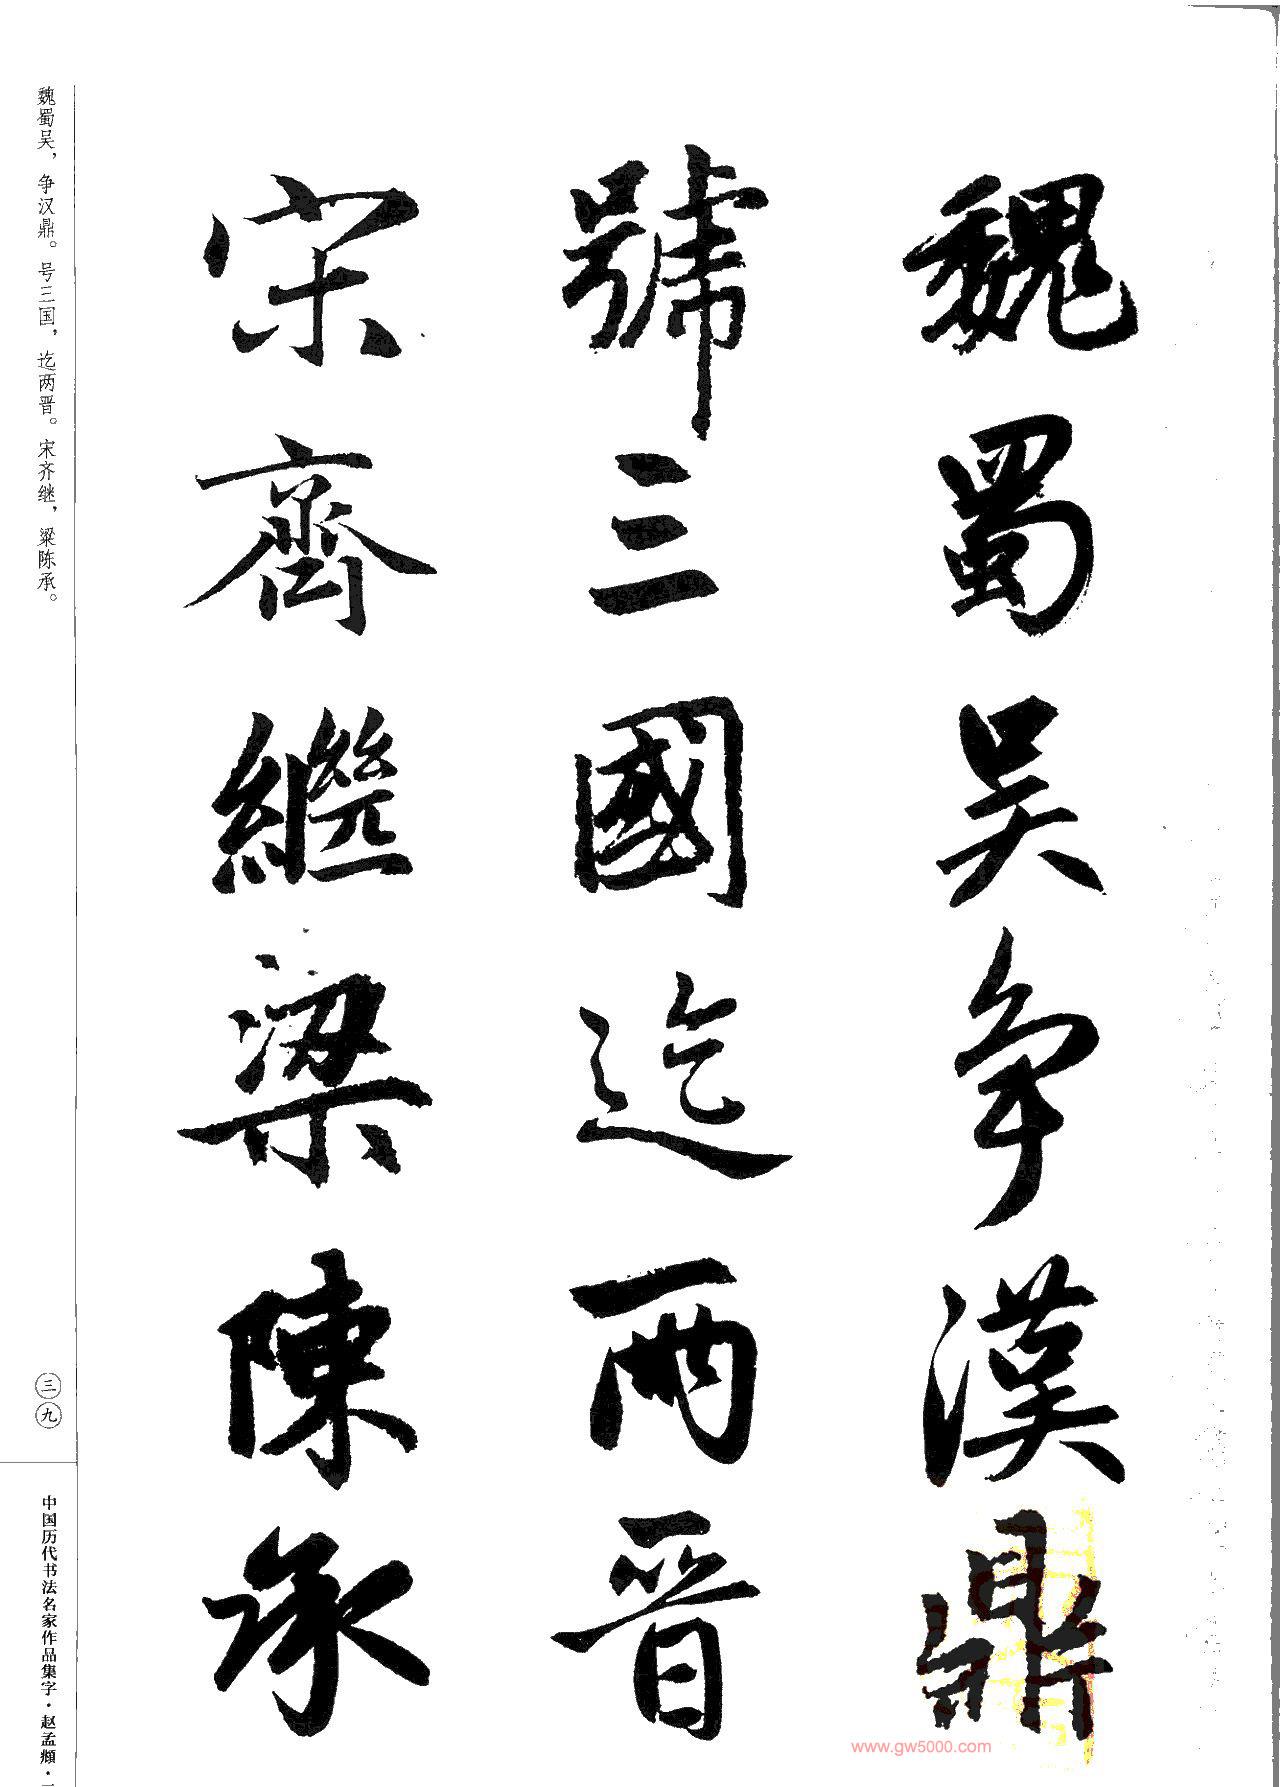 魏蜀吴争漢鼎
號三國迄兩晋
宋齊繼梁陳承
魏蜀吴，争汉鼎。号三国，迄两晋。宋齐继，梁陈承。
三九
中国历代书法名家作品集字·赵孟頫·
www.gw5000.com